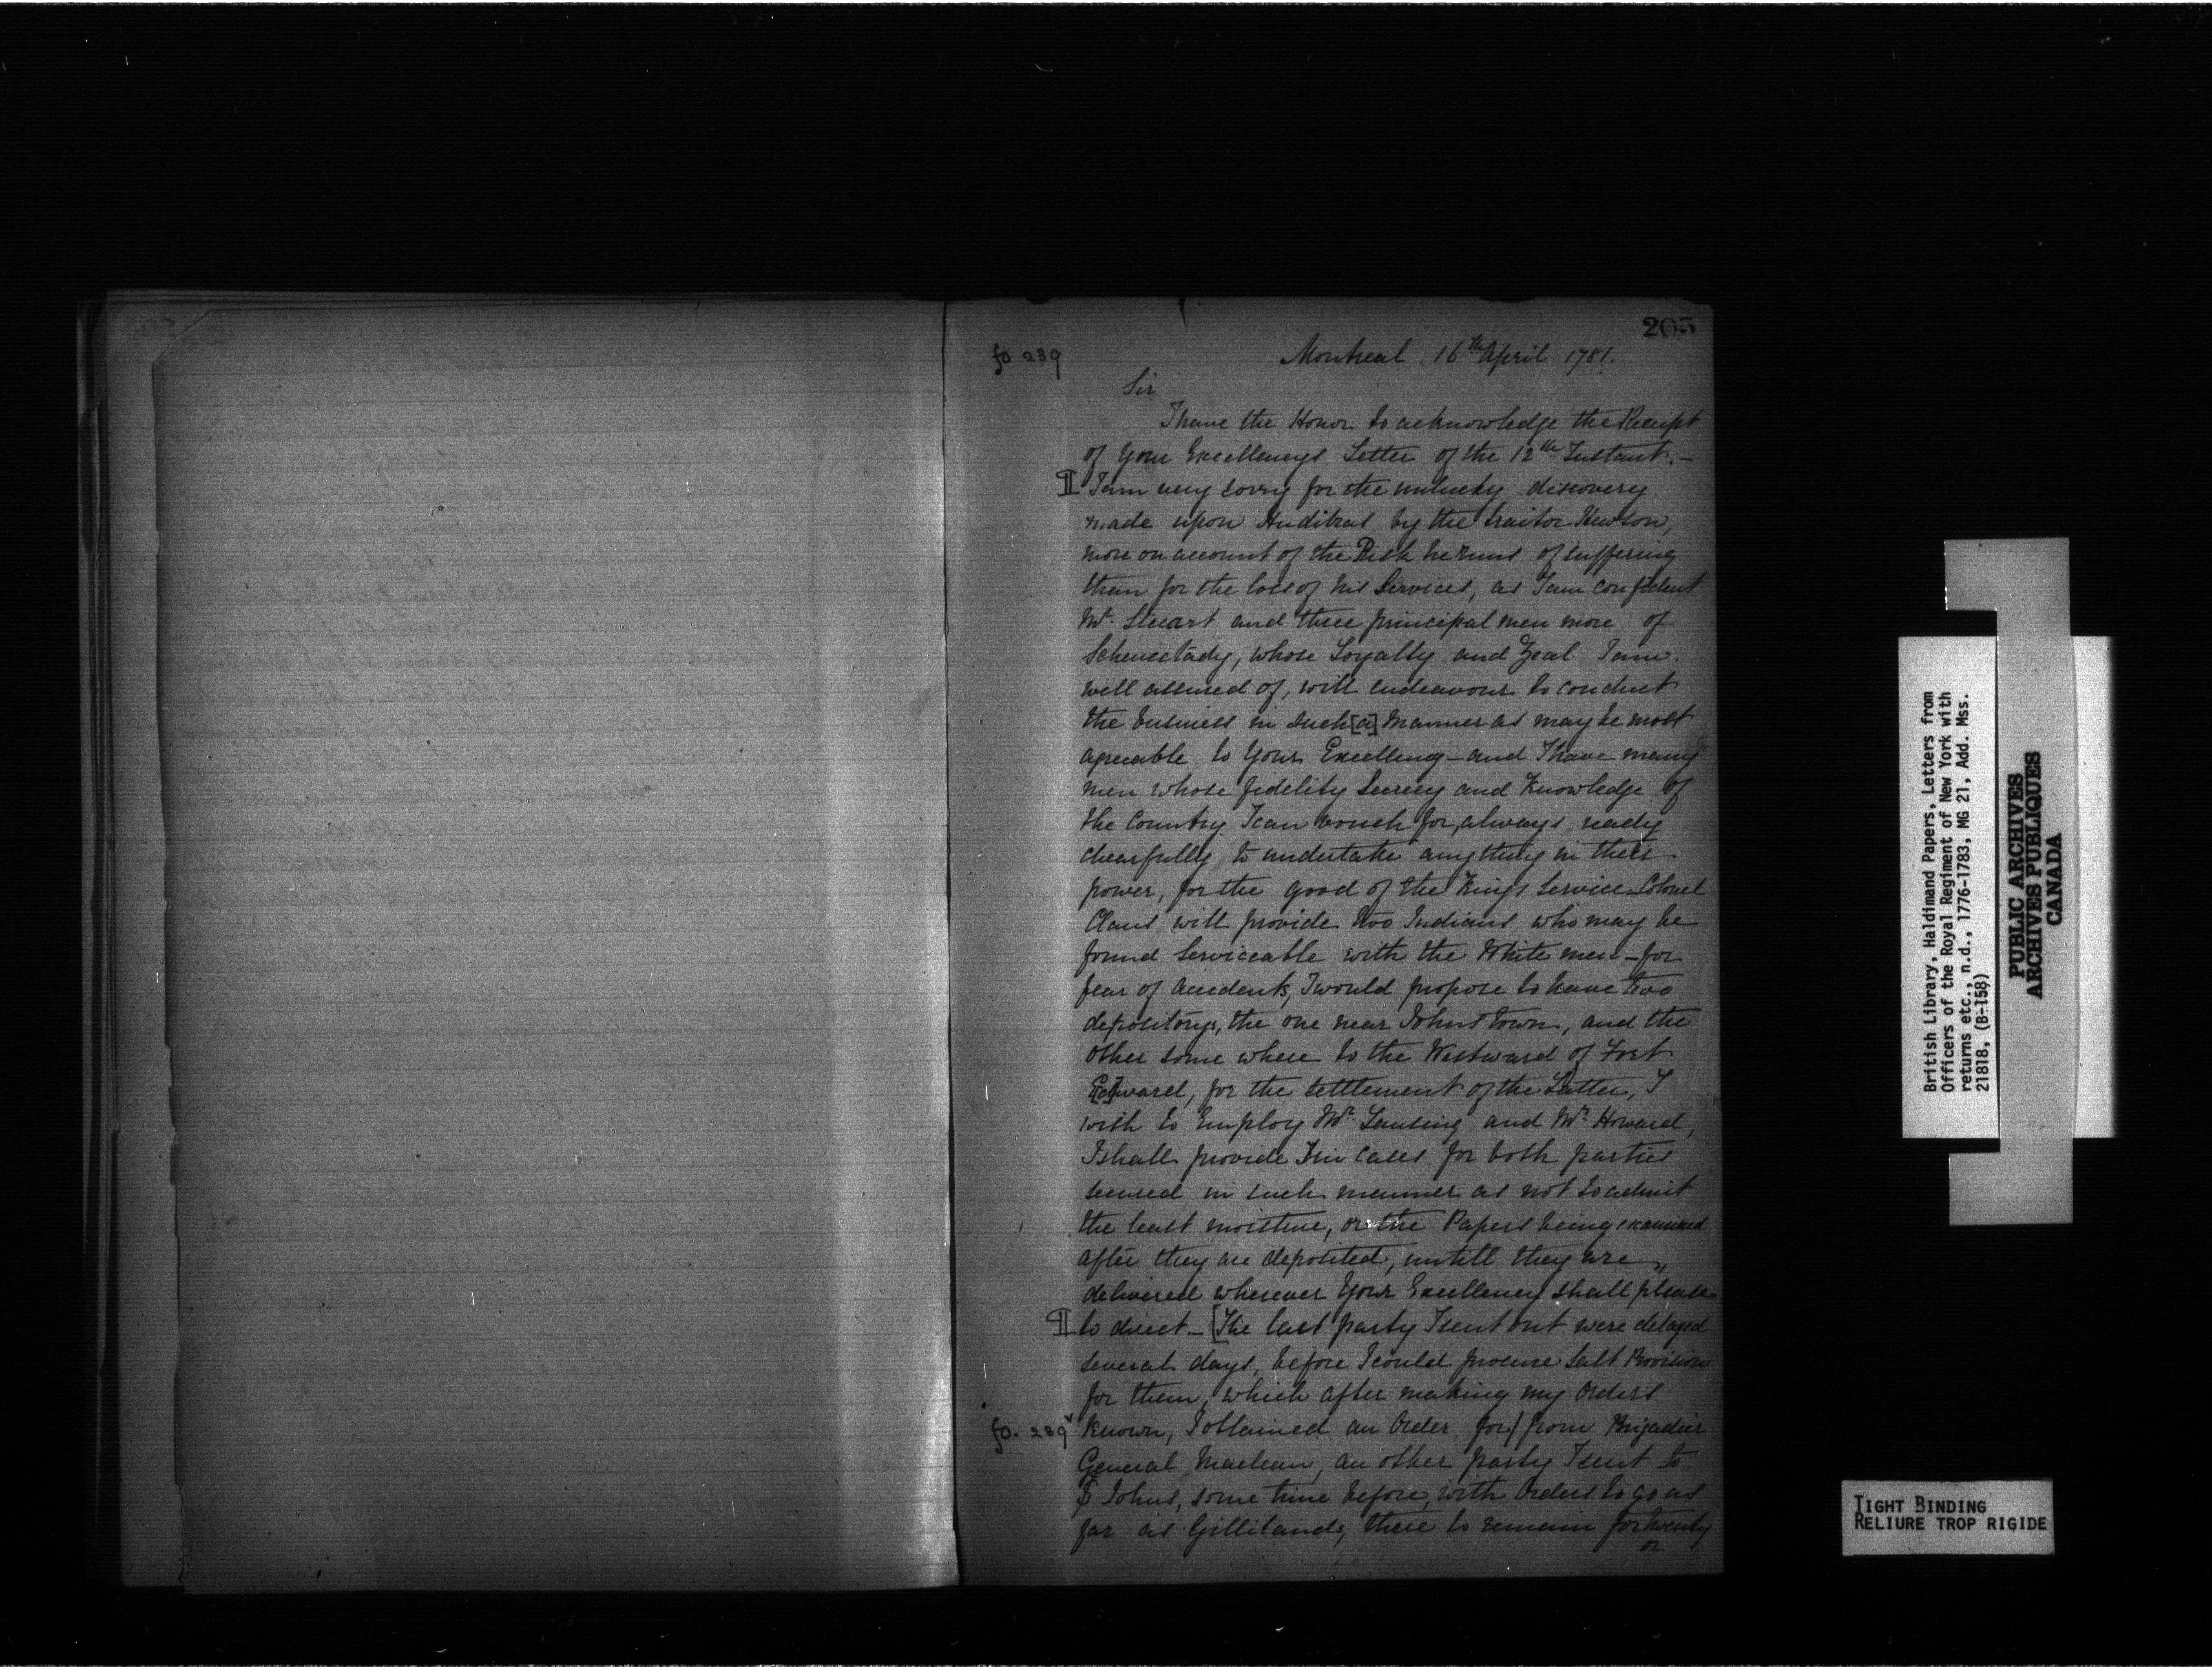 205
fo 239
Montreal 16th April 1781.
Sir
I have the Honor to acknowledge the Receipt
of Your Excellencys Letter of the 12th Instant. —
¶ I am very sorry for the unlucky discovery
made upon by the traitor Hewson,
more on account of the Risk he runs of suffering
than for the loss of his Services, as I am confident
Mr. Stuart and three principal men more of
Schenectady, whose Loyalty and Zeal I am
well assured of, will endeavour to conduct
the business in such [a] manner as may be most
agreeable to Your Excellency — and I have many
men whose fidelity Secrecy and Knowledge of
the Country I can vouch for, always ready
chearfully to undertake any thing in their
power, for the good of the Kings Service — Colonel
Claus will provide two Indians who may be
found Serviceable with the White men — for
fear of Accidents, I would propose to have two
depositorys, the one near Johns town, and the
other some where to the Westward of Fort
E[d]ward, for the settlement of the Latter, I
wish to Employ Mr. Lansing and Mr. Howard,
I shall provide Tin Cases for both parties
secured in such manner as not to admit
the least moisture, or the Papers being examined
after they are deposited, untill they are
delivered wherever Your Excellency shall please
¶ to direct. — [The last party I sent out were delayed
several days, before I could procure Salt Provision
for them, which after making my Orders
fo. 239v known, I obtained an Order for / from Brigadier
General Maclean, an other party I sent to
St Johns, some time before, with Orders to go as
far as Gillilands, there to remain for twenty
or
British Library, Haldimand Papers, Letters from
Officers of the Royal Regiment of New York with
returns etc., n.d., 1776-1783, MG 21, Add. Mss.
21818, (B-158)
PUBLIC ARCHIVES
ARCHIVES PUBLIQUES
CANADA
TIGHT BINDING
RELIURE TROP RIGIDE